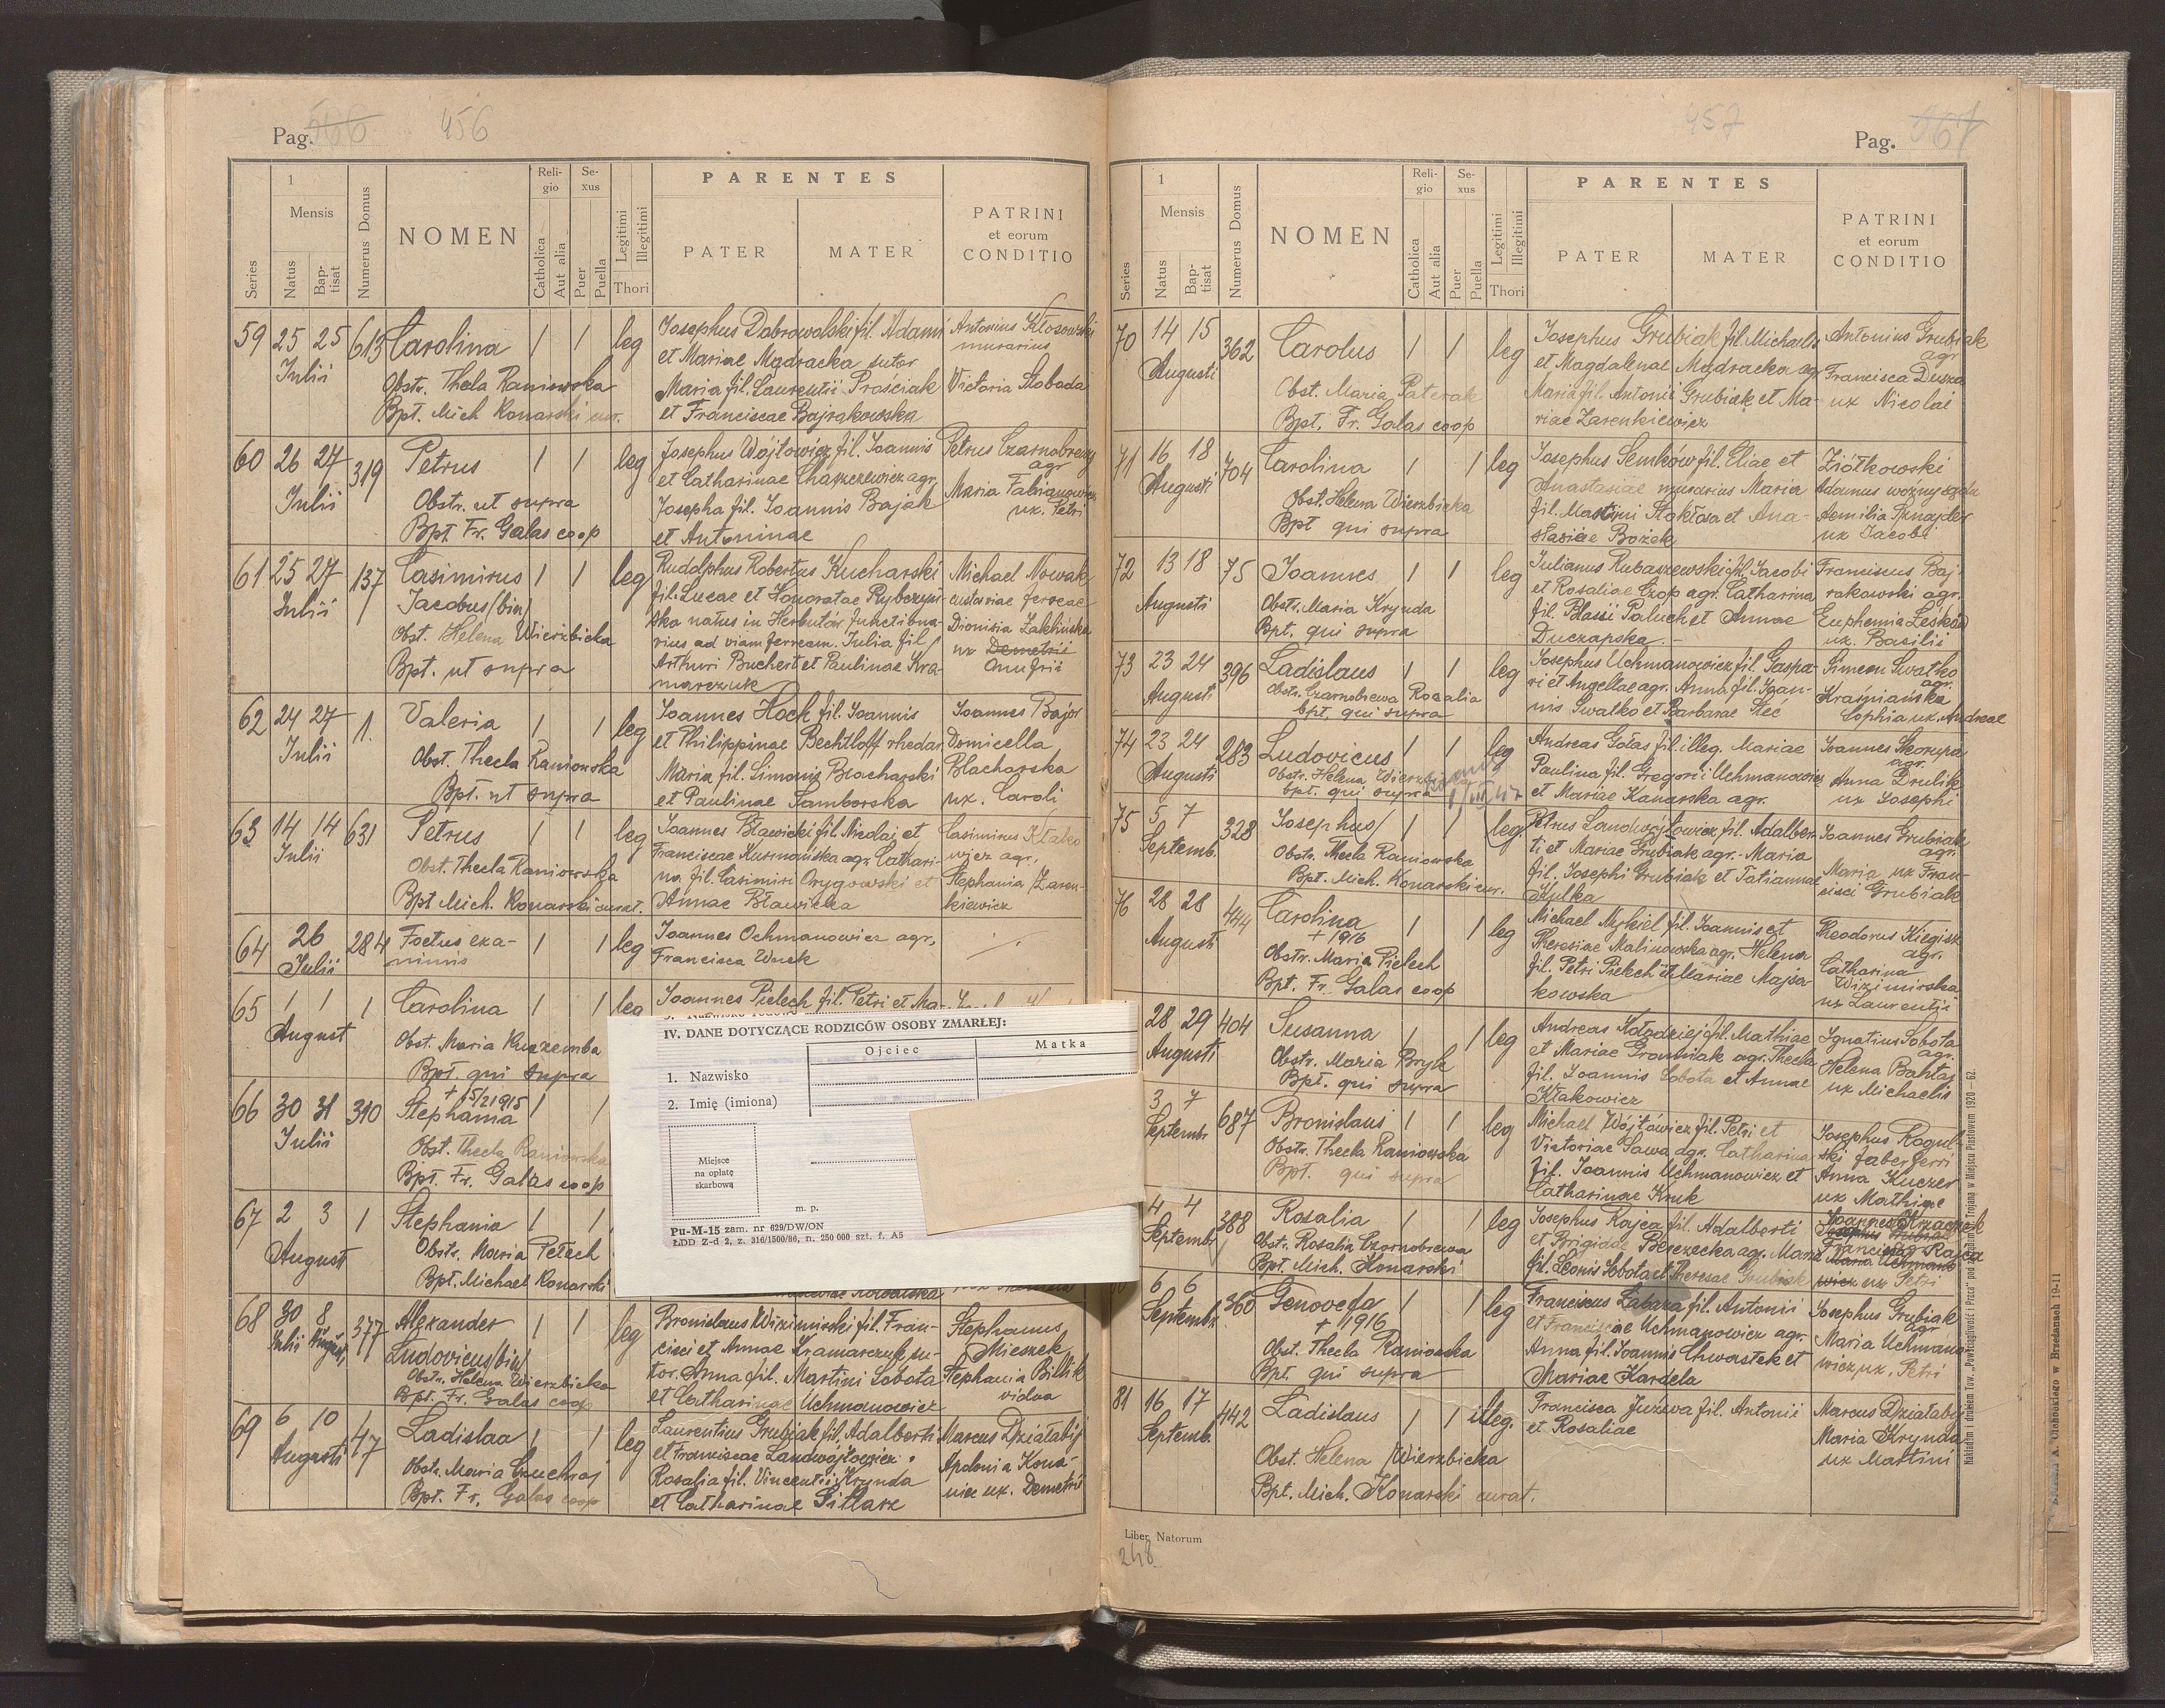 Pag. 566 456
Series
1
Mensis
Natus
Bap-
tisat
Numerus Domus
NOMEN
Reli-
gio
Catholica
Aut alia
Se-
xus
Puer
Puella
Legitimi
Illegitimi
Thori
PARENTES
PATER
MATER
PATRINI
et eorum
CONDITIO
59 25 25 613 Carolina 1 1 leg
Julii
Obstr. Thecla Raniowska
Bpt. Mich Konarski cur.
Josephus Dobrowolski fil. Adami
et Mariae Mądracka sutor
Maria fil. Laurentii Prościak
et Franciscae Bajrakowska
Antonius Kłosowski
murarius
Victoria Słoboda
60 26 27 319 Petrus 1 1 leg
Julii
Obstr. ut supra
Bpt. Fr. Galas coop
Josephus Wójtowicz fil. Joannis
et Catharinae Chaszczewicz agr.
Josepha fil. Joannis Bajak
et Antoninae
Petrus Czarnobrewy
agr
Maria Fabianowicz
ux. Petri
61 25 27 137 Casimirus 1 1 leg
Julii
Jacobus (bin)
Obst. Helena Wierzbicka
Bpt. ut supra
Rudolphus Robertus Kucharski
fil. Lucae et Honoratae Rybczyń-
ska natus in Herbutów functiona-
rius ad viam ferream. Julia fil.
Arthuri Buchert et Paulinae Kra-
marczuk
Michael Nowak
custos viae ferreae
Dionisia Zaklińska
ux Demetrii
Onufrii
62 24 27 1. Valeria 1 1 leg
Julii
Obst. Thecla Raniowska
Bpt. ut supra
Joannes Hoch fil. Joannis
et Philippinae Bechtloff rhedar.
Maria fil. Simonis Blacharski
et Paulinae Samborska
Joannes Bajor
Domicella
Blacharska
ux. Caroli
63 14 14 631 Petrus 1 1 leg
Julii
Obst. Thecla Raniowska
Bpt Mich. Konarski curat.
Joannes Bławicki fil. Nicolai et
Franciscae Kurmańska agr. Cathari-
na fil. Casimiri Orygowski et
Annae Bławicka
Casimirus Kłako
wicz agr.
Stephania Zaren-
kiewicz
64 26 284 Foetus exa- 1 1 leg
Julii
nimis
Joannes Ochmanowicz agr.
Francisca Wnek
65 1 1 1 Carolina 1 1 leg
August
Obst. Maria Kurzemba
Bpt. qui supra
Joannes Pielech fil. Petri et Ma-
66 30 31 310 + 15/2 1915
Stephania 1 1
Julii
Obst. Thecla Raniowska
Bpt. Fr. Galas coop
IV. DANE DOTYCZĄCE RODZICÓW OSOBY ZMARŁEJ:
Ojciec Matka
1. Nazwisko
2. Imię (imiona)
Miejsce
na opłatę
skarbową
m. p.
Pu-M-15 zam. nr 629/DW/ON
ŁDD Z-d 2, z. 316/1500/86, n. 250 000 szt. f. A5
67 2 3 1 Stephania 1 1
August
Obstr. Maria Pełech
Bpt. Michael Konarski
68 30 8 377 Alexander 1 1 leg
Julii August
Ludovicus (bin)
Obstr. Helena Wierzbicka
Bpt. Fr. Galas coop
Bronislaus Wizimirski fil. Fran-
cisci et Annae Kramarczuk su-
tor. Anna fil. Martini Sobota
et Catharinae Uchmanowicz
Stephanus
Mieszek
Stephania Bililik
vidua
69 6 10 47 Ladislaa 1 1 leg
Augusti
Obstr. Maria Czuchraj
Bpt. Fr. Galas coop
Laurentius Grubiak fil. Adalberti
et Franciscae Landwójtowicz.
Rosalia fil. Vincentii Krynda
et Catharinae Sitlarz
Marcus Działabij
Apolonia Kona-
wicz ux. Demetrii
457 Pag. 567
Series
1
Mensis
Natus
Bap-
tisat
Numerus Domus
NOMEN
Reli-
gio
Catholica
Aut alia
Se-
xus
Puer
Puella
Legitimi
Illegitimi
Thori
PARENTES
PATER
MATER
PATRINI
et eorum
CONDITIO
70 14 15 362 Carolus 1 1 leg
Augusti
Obst. Maria Paterak
Bpt. Fr. Galas coop
Josephus Grubiak fil. Michaelis
et Magdalenae Mądracka agr
Maria fil. Antonii Grubiak et Ma-
riae Zarenkiewicz
Antonius Grubiak
agr
Francisca Duszka
ux Nicolai
71 16 18 704 Carolina 1 1 leg
Augusti
Obst. Helena Wierzbicka
Bpt qui supra
Josephus Semków fil. Eliae et
Anastasiae murarius Maria
fil. Martini Stokłosa et Ana-
stasiae Bożek
Ziółkowski
Adamus woźny sądu
Aemilia Sznajder
ux Jacobi
72 13 18 75 Joannes 1 1 leg
Augusti
Obstr. Maria Krynda
Bpt. qui supra
Julianus Rubaszewski fil. Jacobi
et Rosaliae Czop agr. Catharina
fil. Blasii Paluch et Annae
Duczapska.-
Franciscus Baj-
rakowski agr.
Euphemia Leśków
ux. Basilii
73 23 24 396 Ladislaus 1 1 leg
Augusti
Obstr. Czarnobrewa Rozalia
bpt. qui supra
Josephus Uchmanowicz fil. Gaspa-
ri et Angellae agr. Anna fil. Joan-
nis Swatko et Barbarae Steć
Simeon Swatko
agr.
Kraśniańska
Sophia ux. Andreae
74 23 24 283 Ludovicus 1 1 leg
Augusti
Obstr. Helena Wierzbicka
bpt. qui supra
Andreas Gołas fil. illeg. Mariae
Paulina fil. Gregorii Uchmanowicz
et Mariae Kanarska agr.
Joannes Skorupa
agr.
Anna Drulik
ux Josephi
75 5 7 328 Josephus 1 1 leg.
Septemb.
Obstr. Thecla Raniowska
Bpt. Mich. Konarski cur.
Petrus Landwójtowicz fil. Adalber-
ti et Mariae Grubiak agr. - Maria
fil. Josephi Grubiak et Tatiannae
Kulka
Joannes Grubiak
agr.
Maria ux Fran-
cisci Grubiak
76 28 28 444 Carolina 1 1 leg
Augusti + 1916
Obstr. Maria Pielech
Bpt. Fr. Galas coop
Michael Mykiel fil. Joannis et
Theresiae Malinowska agr. Helena
fil. Petri Pielech et Mariae Majda
kowska
Theodorus Kiegisz
agr.
Catharina
Wizimirska
ux Laurentii
28 29 404 Susanna 1 1 leg
Augusti
Obstr. Maria Bryk
Bpt. qui supra
Andreas Kołodziej fil. Mathiae
et Mariae Grontniak agr. Thecla
fil. Joannis Sobota et Annae
Kłakowicz
Ignatius Sobota
agr.
Helena Bahtaj
ux Michaelis
3 7 687 Bronislaus 1 1 leg
Septembr
Obstr. Thecla Raniowska
Bpt. qui supra
Michael Wójtowicz fil. Petri et
Victoriae Sawa agr. Catharina
fil. Joannis Uchmanowicz et
Catharinae Kruk
Josephus Rogul-
ski faber ferri
Anna Kuczer
ux Mathiae
4 4 388 Rosalia 1 1 leg
Septembr
Obstr. Rosalia Czarnobrewa
Bpt. Mich. Konarski
Josephus Rajca fil. Adalberti
et Brigidae Berezecka agr. Maria
fil. Leonis Sobota et Theresae Grubiak
Joannes Krzaczek
Josephus Grubiak
Francisca Rajca
Maria Uchmano
wicz ux Petri
6 6 360 Genovefa 1 1 leg
Septembr. + 1916
Obst. Thecla Raniowska
Bpt. qui supra
Franciscus Łabaza fil. Antonii
et Franciscae Uchmanowicz agr.
Anna fil. Joannis Chwastek et
Mariae Kardela
Josephus Grubiak
agr
Maria Uchmano
wicz ux. Petri
81 16 17 442 Ladislaus 1 1 illeg.
Septemb.
Obst. Helena Wierzbicka
Bpt. Mich. Konarski curat.
Francisca Juzwa fil. Antonii
et Rosaliae
Marcus Działabij
Maria Krynda
ux Martini
Liber Natorum
248
Nakładem i drukiem Tow. „Powściągliwość i Praca" pod zarządem Trojana w Miejscu Piastowem 1920 — 62.